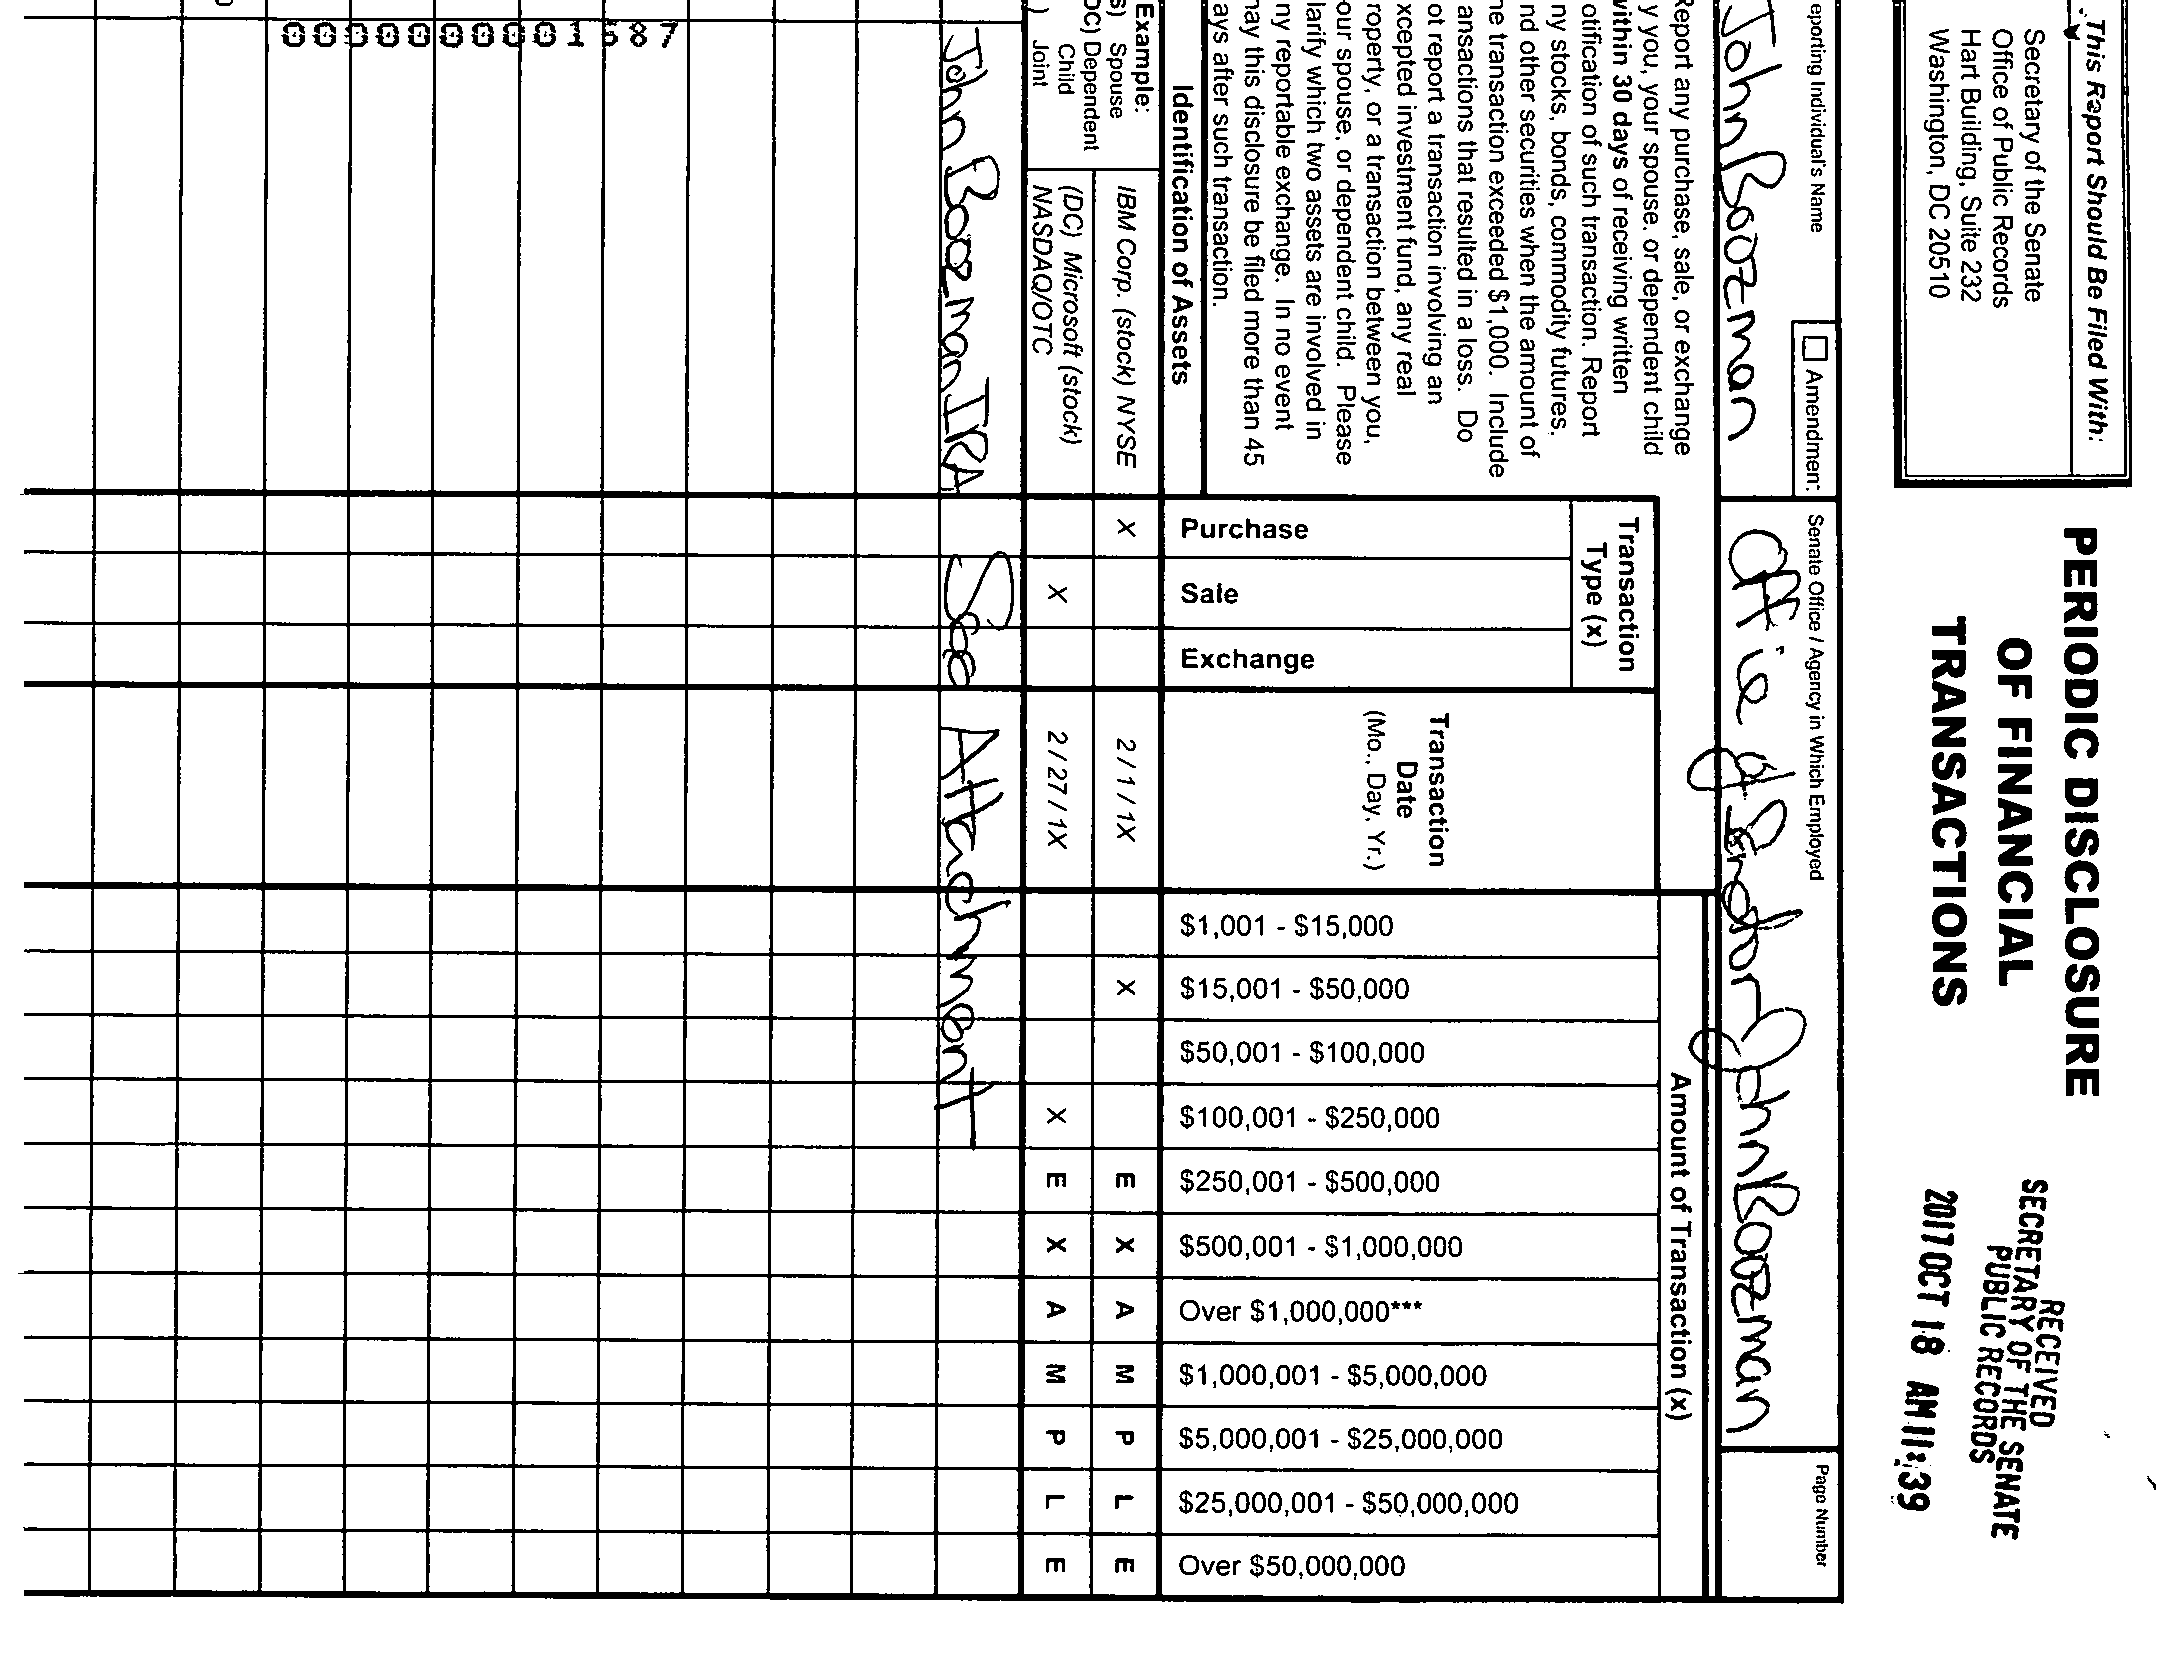 This Report Should Be Filed With:
Secretary of the Senate
Office of Public Records
Hart Building, Suite 232
Washington, DC 20510
PERIODIC DISCLOSURE
OF FINANCIAL
TRANSACTIONS
RECEIVED
SECRETARY OF THE SENATE
PUBLIC RECORDS
2017 OCT 18 AM 11:39
eporting Individual's Name
Amendment:
Senate Office / Agency in Which Employed
Page Number
John Boozman
Office of Senator John Boozman
Report any purchase, sale, or exchange
y you, your spouse, or dependent child
within 30 days of receiving written
otification of such transaction. Report
ny stocks, bonds, commodity futures,
nd other securities when the amount of
he transaction exceeded $1,000. Include
ansactions that resulted in a loss. Do
ot report a transaction involving an
xcepted investment fund, any real
roperty, or a transaction between you,
our spouse, or dependent child. Please
larify which two assets are involved in
ny reportable exchange. In no event
nay this disclosure be filed more than 45
ays after such transaction.
Identification of Assets
Transaction
Type (x)
Purchase
Sale
Exchange
Transaction
Date
(Mo., Day, Yr.)
Amount of Transaction (x)
$1,001 - $15,000
$15,001 - $50,000
$50,001 - $100,000
$100,001 - $250,000
$250,001 - $500,000
$500,001 - $1,000,000
Over $1,000,000***
$1,000,001 - $5,000,000
$5,000,001 - $25,000,000
$25,000,001 - $50,000,000
Over $50,000,000
Example:
S) Spouse
DC) Dependent
Child
) Joint
IBM Corp. (stock) NYSE X 2 / 1 / 1X X E X A M P L E
(DC) Microsoft (stock)
NASDAQ/OTC X 2 / 27 / 1X X E X A M P L E
John Boozman IRA See Attachment
000000001587